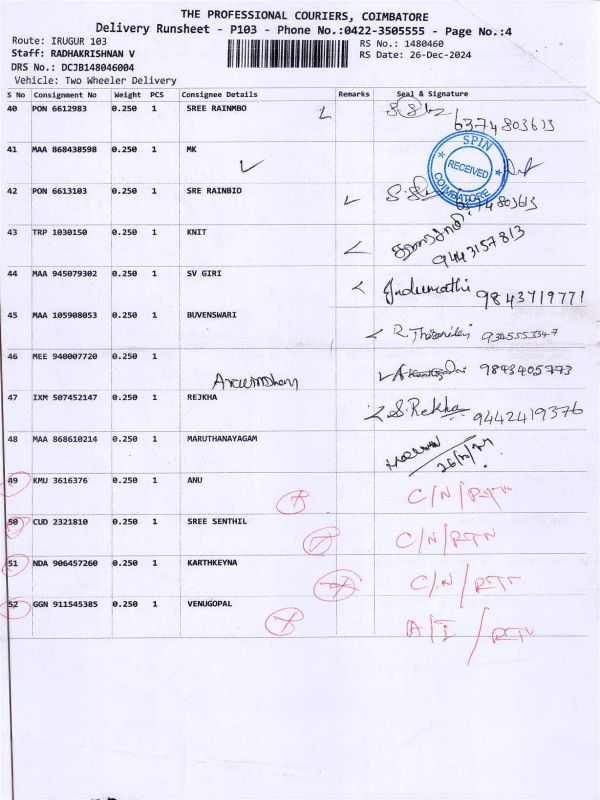 THE PROFESSIONAL COURIERS, COIMBATORE
Delivery Runsheet - P103 - Phone No.:0422-3505555 - Page No.:4
Route: IRUGUR 103
RS No.: 1480460
Staff: RADHAKRISHNAN V
RS Date: 26-Dec-2024
DRS No.: DCJB148046004
Vehicle: Two Wheeler Delivery
S No Consignment No Weight PCS Consignee Details Remarks Seal & Signature
40 PON 6612983 0.250 1 SREE RAINMBO
6374803613
41 MAA 868438598 0.250 1 MK
SPIN RECEIVED COIMBATORE
42 PON 6613103 0.250 1 SRE RAINBIO
6374803613
43 TRP 1030150 0.250 1 KNIT
9443157813
44 MAA 945079302 0.250 1 SV GIRI Indumathi 9843719771
45 MAA 105908053 0.250 1 BUVENSWARI R. 9345553347
46 MEE 940007720 0.250 1 9843405773
47 IXM 507452147 0.250 1 REJKHA S.Rekha 9442419376
48 MAA 868610214 0.250 1 MARUTHANAYAGAM
26/12/24
49 KMU 3616376 0.250 1 ANU C/N/RTN
50 CUD 2321810 0.250 1 SREE SENTHIL C/N/RTN
51 NDA 906457260 0.250 1 KARTHKEYNA C/N/RTN
52 GGN 911545385 0.250 1 VENUGOPAL A/I/RTN